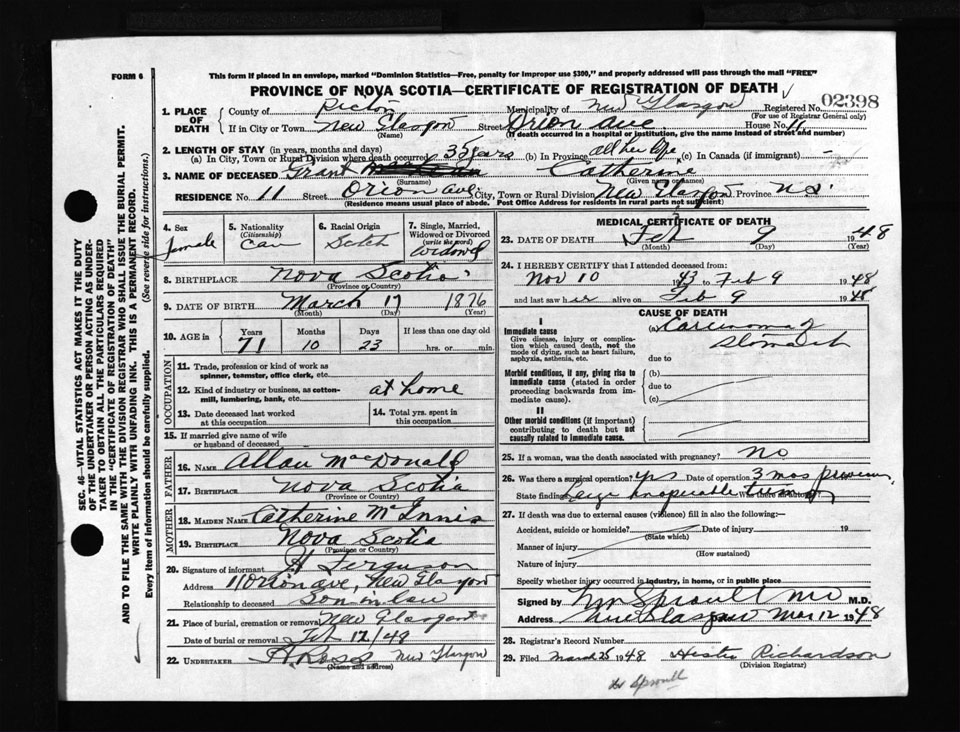 FORM 6
This form if placed in an envelope, marked "Dominion Statistics—Free, penalty for improper use $300," and properly addressed will pass through the mail "FREE"
PROVINCE OF NOVA SCOTIA—CERTIFICATE OF REGISTRATION OF DEATH
1. PLACE OF DEATH
County of Pictou Municipality of New Glasgow Registered No. 02398
(For use of Registrar General only)
If in City or Town New Glasgow Street Orion Ave. House No. 11
(Name) (If death occurred in a hospital or institution, give the name instead of street and number)
2. LENGTH OF STAY (in years, months and days)
(a) In City, Town or Rural Division where death occurred 35 years (b) In Province all her life (c) In Canada (if immigrant) —
3. NAME OF DECEASED Grant Catherine
(Surname) (Given name or names)
RESIDENCE No. 11 Street Orion Ave. City, Town or Rural Division New Glasgow Province N.S.
(Residence means usual place of abode. Post Office Address for residents in rural parts not sufficient)
4. Sex female
5. Nationality (Citizenship) Can
6. Racial Origin Scotch
7. Single, Married, Widowed or Divorced (write the word) Widowed
8. BIRTHPLACE Nova Scotia
(Province or Country)
9. DATE OF BIRTH March 17 1876
(Month) (Day) (Year)
10. AGE in Years Months Days If less than one day old
71 10 23 hrs. or min.
OCCUPATION
11. Trade, profession or kind of work as spinner, teamster, office clerk, etc.
12. Kind of industry or business, as cotton-mill, lumbering, bank, etc. at home
13. Date deceased last worked at this occupation
14. Total yrs. spent in this occupation
15. If married give name of wife or husband of deceased
FATHER
16. NAME Allan MacDonald
17. BIRTHPLACE Nova Scotia
(Province or Country)
MOTHER
18. MAIDEN NAME Catherine McInnis
19. BIRTHPLACE Nova Scotia
(Province or Country)
20. Signature of informant H Ferguson
Address 11 Orion Ave, New Glasgow
Relationship to deceased Son in law
21. Place of burial, cremation or removal New Glasgow
Date of burial or removal Feb 12/48
22. UNDERTAKER H. Ross New Glasgow
(Name and address)
MEDICAL CERTIFICATE OF DEATH
23. DATE OF DEATH Feb 9 1948
(Month) (Day) (Year)
24. I HEREBY CERTIFY that I attended deceased from:
Nov 10 1943 to Feb 9 1948
and last saw her alive on Feb 9 1948
CAUSE OF DEATH
I
Immediate cause
Give disease, injury or complication which caused death, not the mode of dying, such as heart failure, asphyxia, asthenia, etc.
(a) Carcinoma of
Stomach
due to
Morbid conditions, if any, giving rise to immediate cause (stated in order proceeding backwards from immediate cause).
(b)
due to
(c)
II
Other morbid conditions (if important) contributing to death but not causally related to immediate cause.
25. If a woman, was the death associated with pregnancy? no
26. Was there a surgical operation? yes Date of operation 3 mos previous
State finding Large inoperable tumor
27. If death was due to external causes (violence) fill in also the following:—
Accident, suicide or homicide? Date of injury 19
(State which)
Manner of injury
(How sustained)
Nature of injury
Specify whether injury occurred in industry, in home, or in public place
Signed by Sproull MD M.D.
Address New Glasgow Date Mar 12 1948
28. Registrar's Record Number
29. Filed March 25 1948 Hester Richardson
(Division Registrar)
Sproull
SEC. 46—VITAL STATISTICS ACT MAKES IT THE DUTY
OF THE UNDERTAKER OR PERSON ACTING AS UNDER-
TAKER TO OBTAIN ALL THE PARTICULARS REQUIRED
IN THE "CERTIFICATE OF REGISTRATION OF DEATH"
AND TO FILE THE SAME WITH THE DIVISION REGISTRAR WHO SHALL ISSUE THE BURIAL PERMIT.
WRITE PLAINLY WITH UNFADING INK. THIS IS A PERMANENT RECORD.
Every item of information should be carefully supplied. (See reverse side for instructions.)